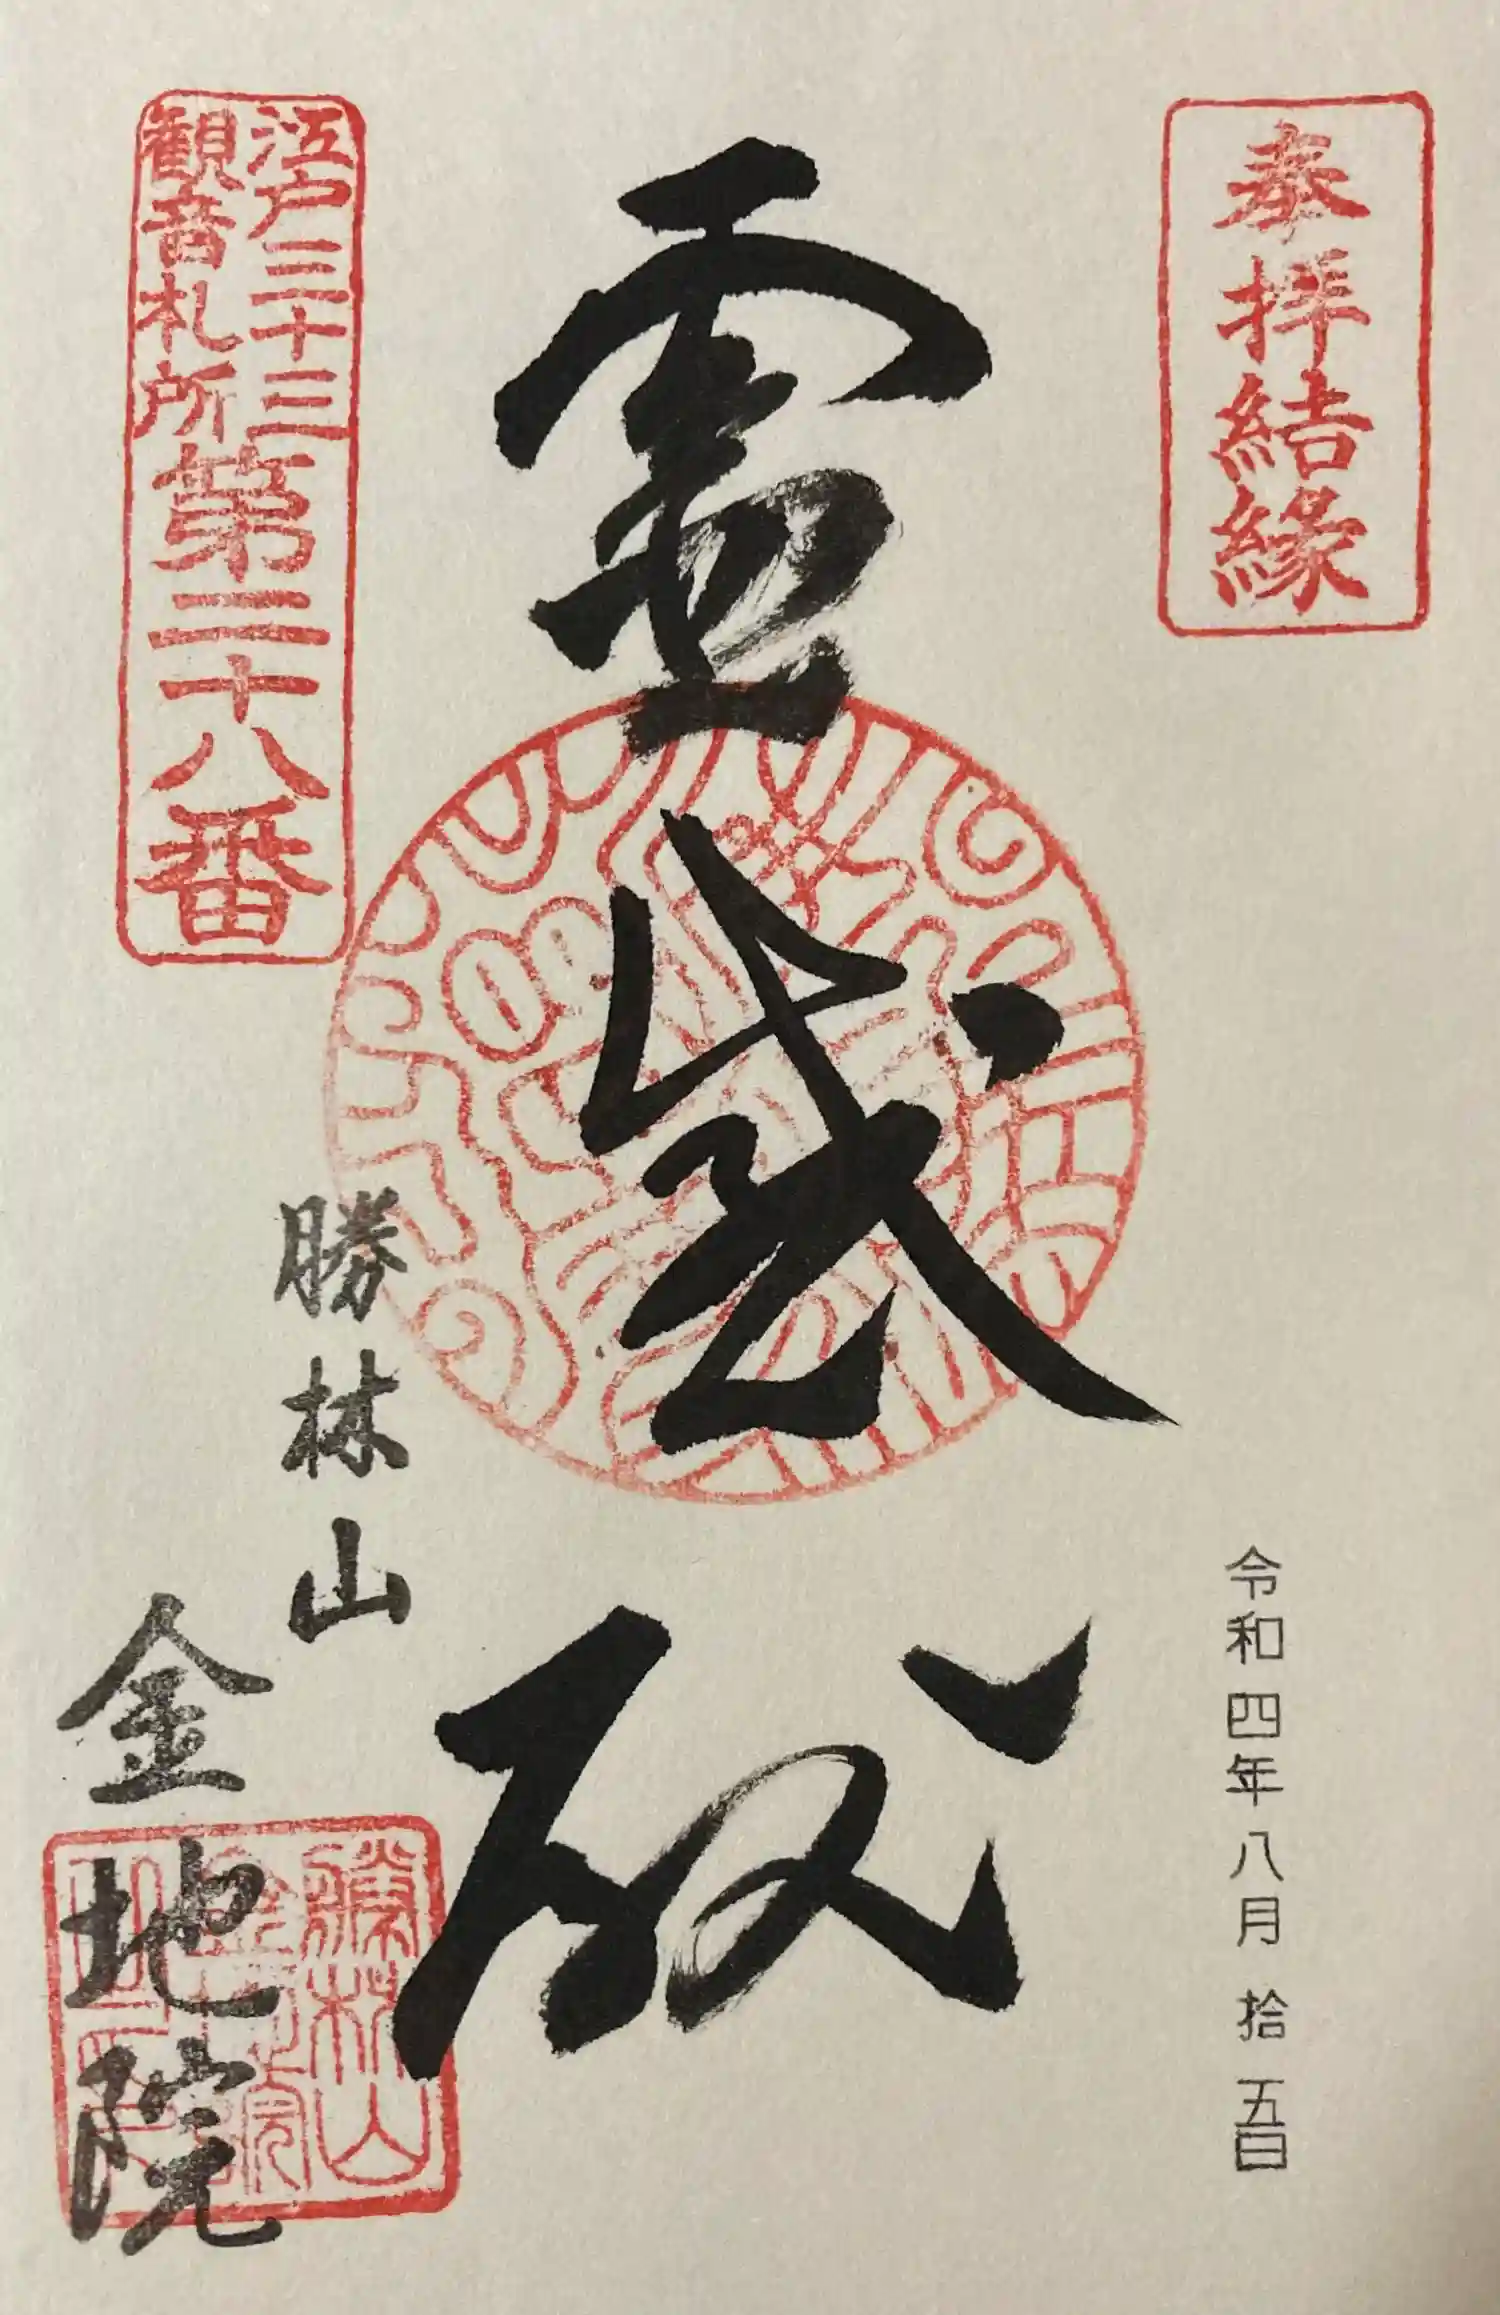 奉拝結縁
令和四年八月拾五日
霊感殿
江戸三十三
観音札所
第二十八番
勝林山
金地院
勝林山
金地院
之印